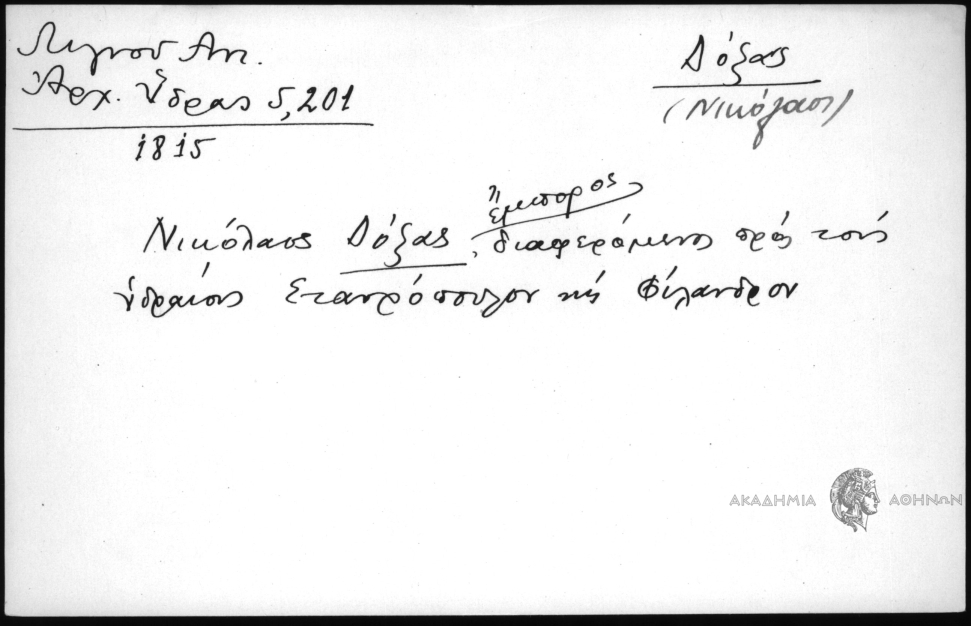 Λιγνού Αντ.
Ἀρχ. Ὕδρας 5,201
1815
Δόξας
(Νικόλαος)
ἔμπορος
Νικόλαος Δόξας, διαφερόμενος πρὸς τοὺς
ὑδραίους Σταυρόπουλον καὶ Φίλανδρον
ΑΚΑΔΗΜΙΑ ΑΘΗΝΩΝ